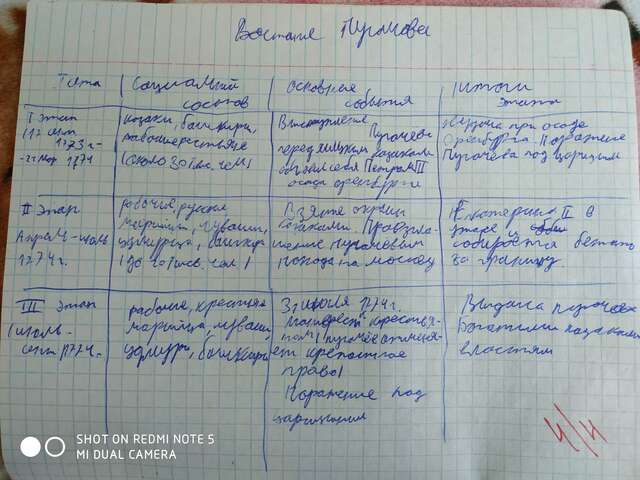 Востание Пугачёва
Дата
Социальный
состав
Основные
события
Итоги
этапа
I этап
(17 сент
1773 г-
-22 мар 1774
казаки, башкиры,
рабочие крестьяне
(около 30 тыс. чел)
Выступление Пугачева
перед яицким казаками
объявил себя Петром III
осада оренбурга
Неудача при осаде
Оренбурга. Поражение
Пугачева под царицым
II Этап
Апрель-июль
1774г.
рабочие, русские
марийцы, чуваши,
удмурцы, башкир
(до 20 тыс. чел)
Взятие
казаками. Провозгла-
шение Пугачевым
похода на москву
Екатерина II в
ужаре и
собирается бежать
за границу.
III Этап
(июль-
сент 1774.
рабочие, крестьяне
марийца, чуваши,
удмурт, башкиры
31 июля 1774г.
Манифест крестья-
нам (Пугачев отменя-
ет крепостное
право)
Поражение под
царицыным
Выдача пугачева
богатыми казаками
властям
4/4
SHOT ON REDMI NOTE 5
MI DUAL CAMERA